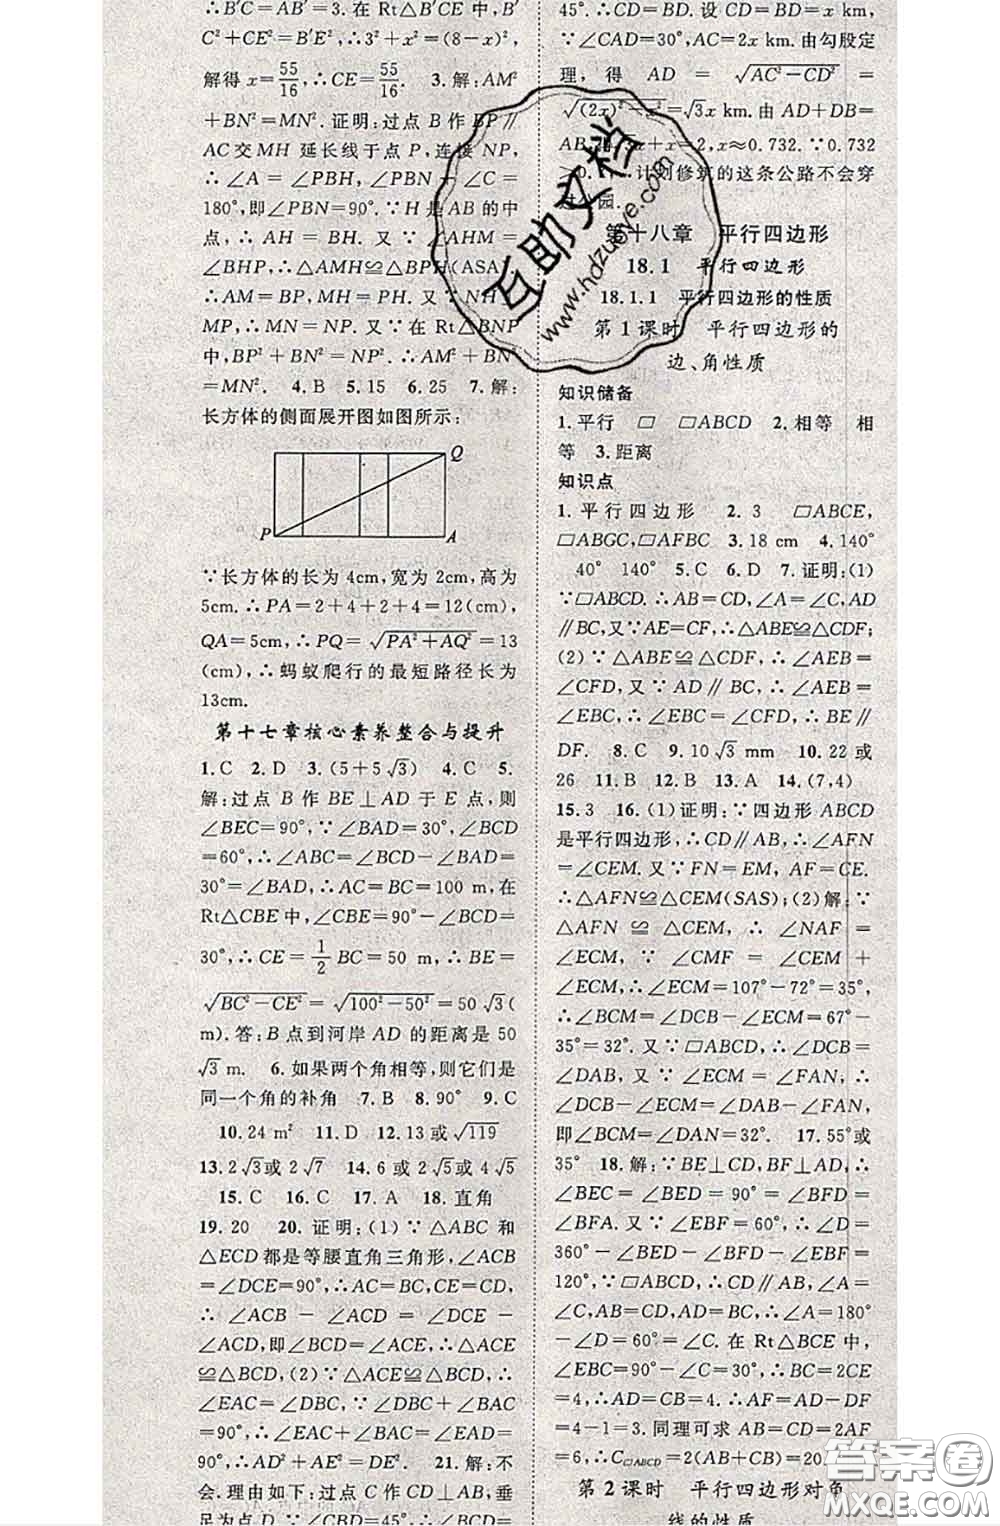 ∴B′C=AB′=3. 在 Rt△B′CE 中, B′
C²+CE²=B′E²,∴3²+x²=(8-x)²,
解得 x=55/16,∴CE=55/16. 3. 解:AM²
+BN²=MN². 证明:过点 B 作 BP∥
AC交 MH 延长线于点 P,连接 NP,
∴∠A=∠PBH,∴∠PBN=∠A+∠C=
180°,即∠PBN=90°. ∵H 是 AB 的中
点,∴AH=BH. 又∵∠AHM=
∠BHP,∴△AMH≌△BPH(ASA).
∴AM=BP,MH=PH. 又∵NH⊥
MP,∴MN=NP. 又∵在 Rt△BNP
中,BP²+BN²=NP²,∴AM²+BN²
=MN². 4. B 5. 15 6. 25 7. 解:
长方体的侧面展开图如图所示:
Q
P
A
∵长方体的长为 4cm,宽为 2cm,高为
5cm. ∴PA=2+4+2+4=12(cm),
QA=5cm,∴PQ=√(PA²+AQ²)=13
(cm),∴蚂蚁爬行的最短路径长为
13cm.
第十七章核心素养整合与提升
1. C 2. D 3. (5+5√3) 4. C 5.
解:过点 B 作 BE⊥AD 于 E 点,则
∠BEC=90°,∵∠BAD=30°,∠BCD
=60°,∴∠ABC=∠BCD-∠BAD=
30°=∠BAD,∴AC=BC=100 m,在
Rt△CBE 中,∠CBE=90°-∠BCD=
30°,∴CE=1/2 BC=50 m,∴BE=
√(BC²-CE²)=√(100²-50²)=50√3(
m). 答:B 点到河岸 AD 的距离是 50
√3 m. 6. 如果两个角相等,则它们是
同一个角的补角 7. B 8. 90° 9. C
10. 24 m² 11. D 12. 13 或√119
13. 2√3或 2√7 14. 6 或 2√5或 4√5
15. C 16. C 17. A 18. 直角
19. 20 20. 证明:(1)∵△ABC 和
△ECD都是等腰直角三角形,∠ACB
=∠DCE=90°,∴AC=BC,CE=CD,
∴∠ACB-∠ACD=∠DCE-
∠ACD,即∠BCD=∠ACE,∴△ACE
≌△BCD,(2)∵△ACE≌△BCD,∴
∠EAC=∠DBC,∵∠DBC+∠BAC
=90°,∴∠EAD=∠EAC+∠BAC=
90°,∴AD²+AE²=DE². 21. 解:不
会. 理由如下:过点 C 作 CD⊥AB,垂
足为点 D,∵∠CBD=45°,∴∠BCD=
45°. ∴CD=BD. 设 CD=BD=x km.
∵∠CAD=30°,AC=2x km. 由勾股定
理,得 AD=√(AC²-CD²)=
√((2x)²-x²)=√3x km. 由 AD+DB=
x+x=2,x≈0.732. ∵0.732
计划修筑的这条公路不会穿
第十八章 平行四边形
18.1 平行四边形
18.1.1 平行四边形的性质
第 1 课时 平行四边形的
边、角性质
知识储备
1. 平行 ▱ ▱ABCD 2. 相等 相
等 3. 距离
知识点
1. 平行四边形 2. 3 ▱ABCE,
▱ABGC,▱AFBC 3. 18 cm 4. 140°
40° 140° 5. C 6. D 7. 证明:(1)
∵▱ABCD. ∴AB=CD,∠A=∠C,AD
∥BC,又∵AE=CF,∴△ABE≌△CDF;
(2)∵△ABE≌△CDF,∴∠AEB=
∠CFD,又∵AD∥BC,∴∠AEB=
∠EBC,∴∠EBC=∠CFD,∴BE∥
DF. 8. C 9. 10√3 mm 10. 22 或
26 11. B 12. B 13. A 14. (7,4)
15. 3 16. (1)证明:∵四边形 ABCD
是平行四边形,∴CD∥AB,∴∠AFN
=∠CEM. 又∵FN=EM,AF=CE.
∴△AFN≌△CEM(SAS);(2)解:∵
△AFN≌△CEM,∴∠NAF=
∠ECM,∵∠CMF=∠CEM+
∠ECM,∴∠ECM=107°-72°=35°,
∴∠BCM=∠DCB-∠ECM=67°-
35°=32°. 又∵▱ABCD,∴∠DCB=
∠DAB,又∵∠ECM=∠FAN,∴
∠DCB-∠ECM=∠DAB-∠FAN,
即∠BCM=∠DAN=32°. 17. 55°或
35° 18. 解:∵BE⊥CD,BF⊥AD,∴
∠BEC=∠BED=90°=∠BFD=
∠BFA. 又∵∠EBF=60°,∴∠D=
360°-∠BED-∠BFD-∠EBF=
120°,∵▱ABCD,∴CD∥AB,∠A=
∠C,AB=CD,AD=BC,∴∠A=180°
-∠D=60°=∠C. 在 Rt△BCE 中,
∠EBC=90°-∠C=30°,∴BC=2CE
=4,∴AD=CB=4. ∴AF=AD-DF
=4-1=3. 同理可求 AB=CD=2AF
=6,∴C▱ABCD=2(AB+CB)=20.
第 2 课时 平行四边形对角
线的性质
互助文粉
www.hdzuoye.com
答案卷
MXQE.COM